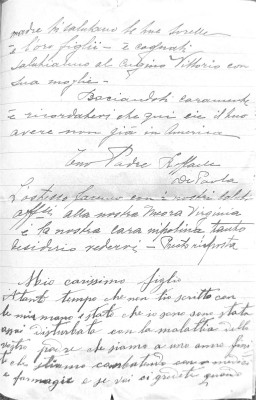 madre ti salutano le tue sorelle
e loro figlii - e cognati
Salutiamo al Cugino Vittorio con
sua moglie -
Baciandoti caramente
e ricordatevi che qui c'è il tuo
avere non già in America
Tuo Padre Raffaele
De Paola
L'ostesso facemo con i nostri saluti
alla nostra Nuora Virginia
e la nostra cara nipotina tanto
desiderio vedervi - Presto risposta
Mio carissimo figlio
tanto tempo che non ti scritto con
le mie mano è stato che io sono stata
assai disturbata con la malattia
che siamo a uno anno
che stiamo combatendo con
e farmacie e se voi ci quando